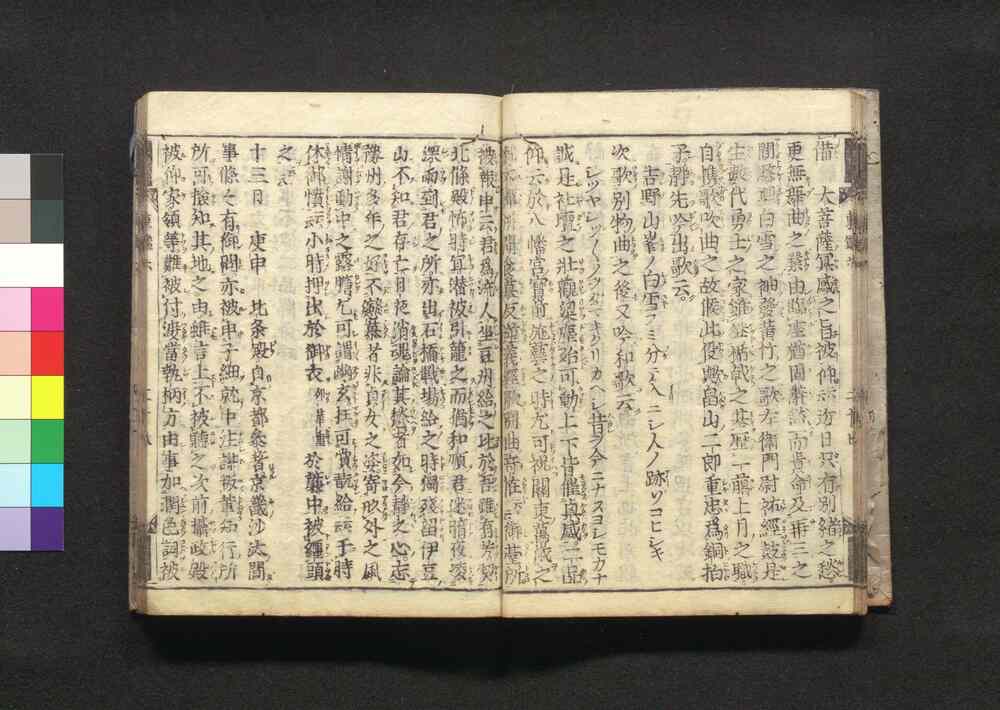 借　大菩薩冥感之旨被仰云近日只有別緒之愁
更無舞曲之業由臨座猶固辞然而貴命及再三之
間憖廻白雪之袖發黄竹之歌左衛門尉祐經鼓是
生數代勇士之家雖継楯戟之基歴一﨟上日之職
自携歌吹曲之故候此役歟畠山二郎重忠爲銅拍
子静先吟出歌云
吉野山峯ノ白雪フミ分テ入ニシ人ノ跡ソコヒシキ
次歌別物曲之後又吟和歌云
シツヤシツ〱ノヲタマキクリカヘシ昔ヲ今ニナスヨシモカナ
誠是社壇之壯觀梁塵殆可動上下皆催興感二品
仰云於八幡宮寶前施藝之時尤可祝關東萬歳之
所聞食慕反逆義經歌別曲奇恠云御臺所
被報申云君爲流人坐豆州給之比於吾雖有芳契
北條殿怖時冝潜被引籠之而猶和順君迷暗夜凌
深雨到君之所亦出石橋戰塲給之時獨殘留伊豆
山不知君存亡日夜消魂論其愁者如今靜之心忘
豫州多年之好不戀慕者非貞女之姿寄形外之風
情謝動中之露膽尤可謂幽玄抂可賞翫給云于時
休御憤云小時押出於御衣卯花重於簾中被纏頭
之
十三日　庚申　北条殿自京都參着京畿沙汰間
事條之有御問亦被申子細就中注誹被輩兩行所
所可損知其地之由雖言上不被聽之次前攝政殿
被仰家領等難被付渡當執柄方由事加潤色詞被